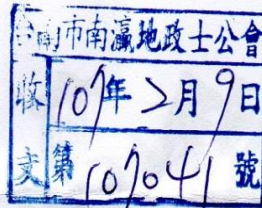 台南市南瀛地政士公會
收 107年2月9日
文 第107041號